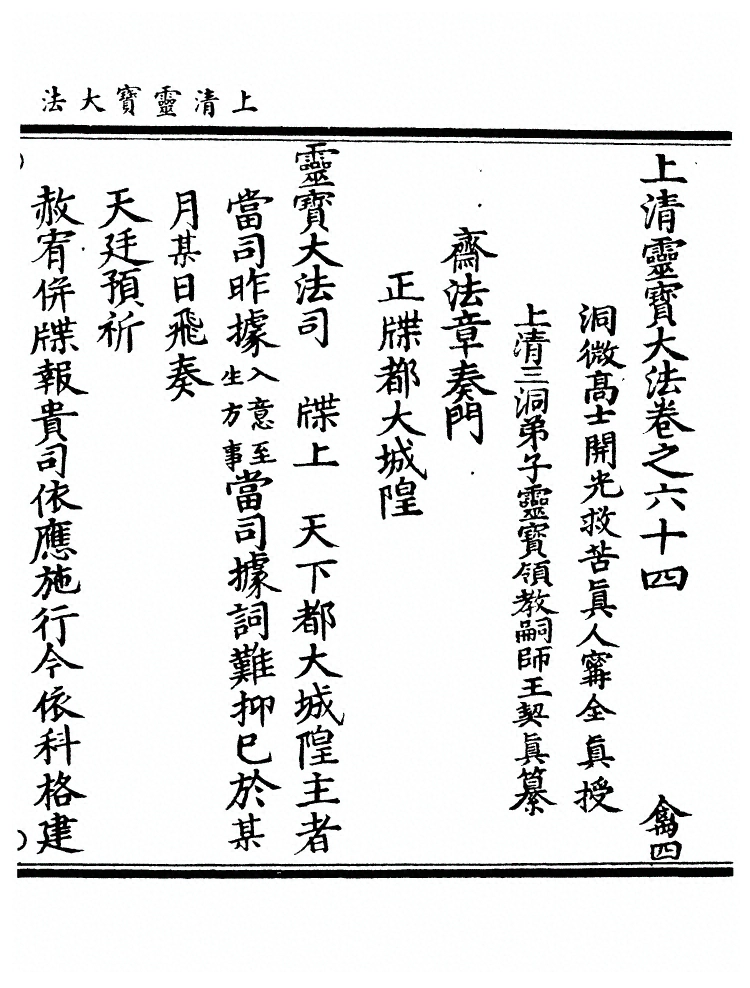 上清靈寶大法
上清靈寶大法卷之六十四　禽四
洞微高士開光救苦眞人寗全眞授
上清三洞弟子靈寶領教嗣師王契眞纂
齋法章奏門
正牒都大城隍
靈寶大法司　牒上　天下都大城隍主者
當司昨據入意至生方事當司據詞難抑已於某
月某日飛奏
天廷預祈
赦宥併牒報貴司依應施行今依科格建